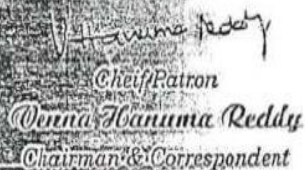 V Hanuma Reddy
Cheif Patron
Venna Hanuma Reddy
Chairman & Correspondent